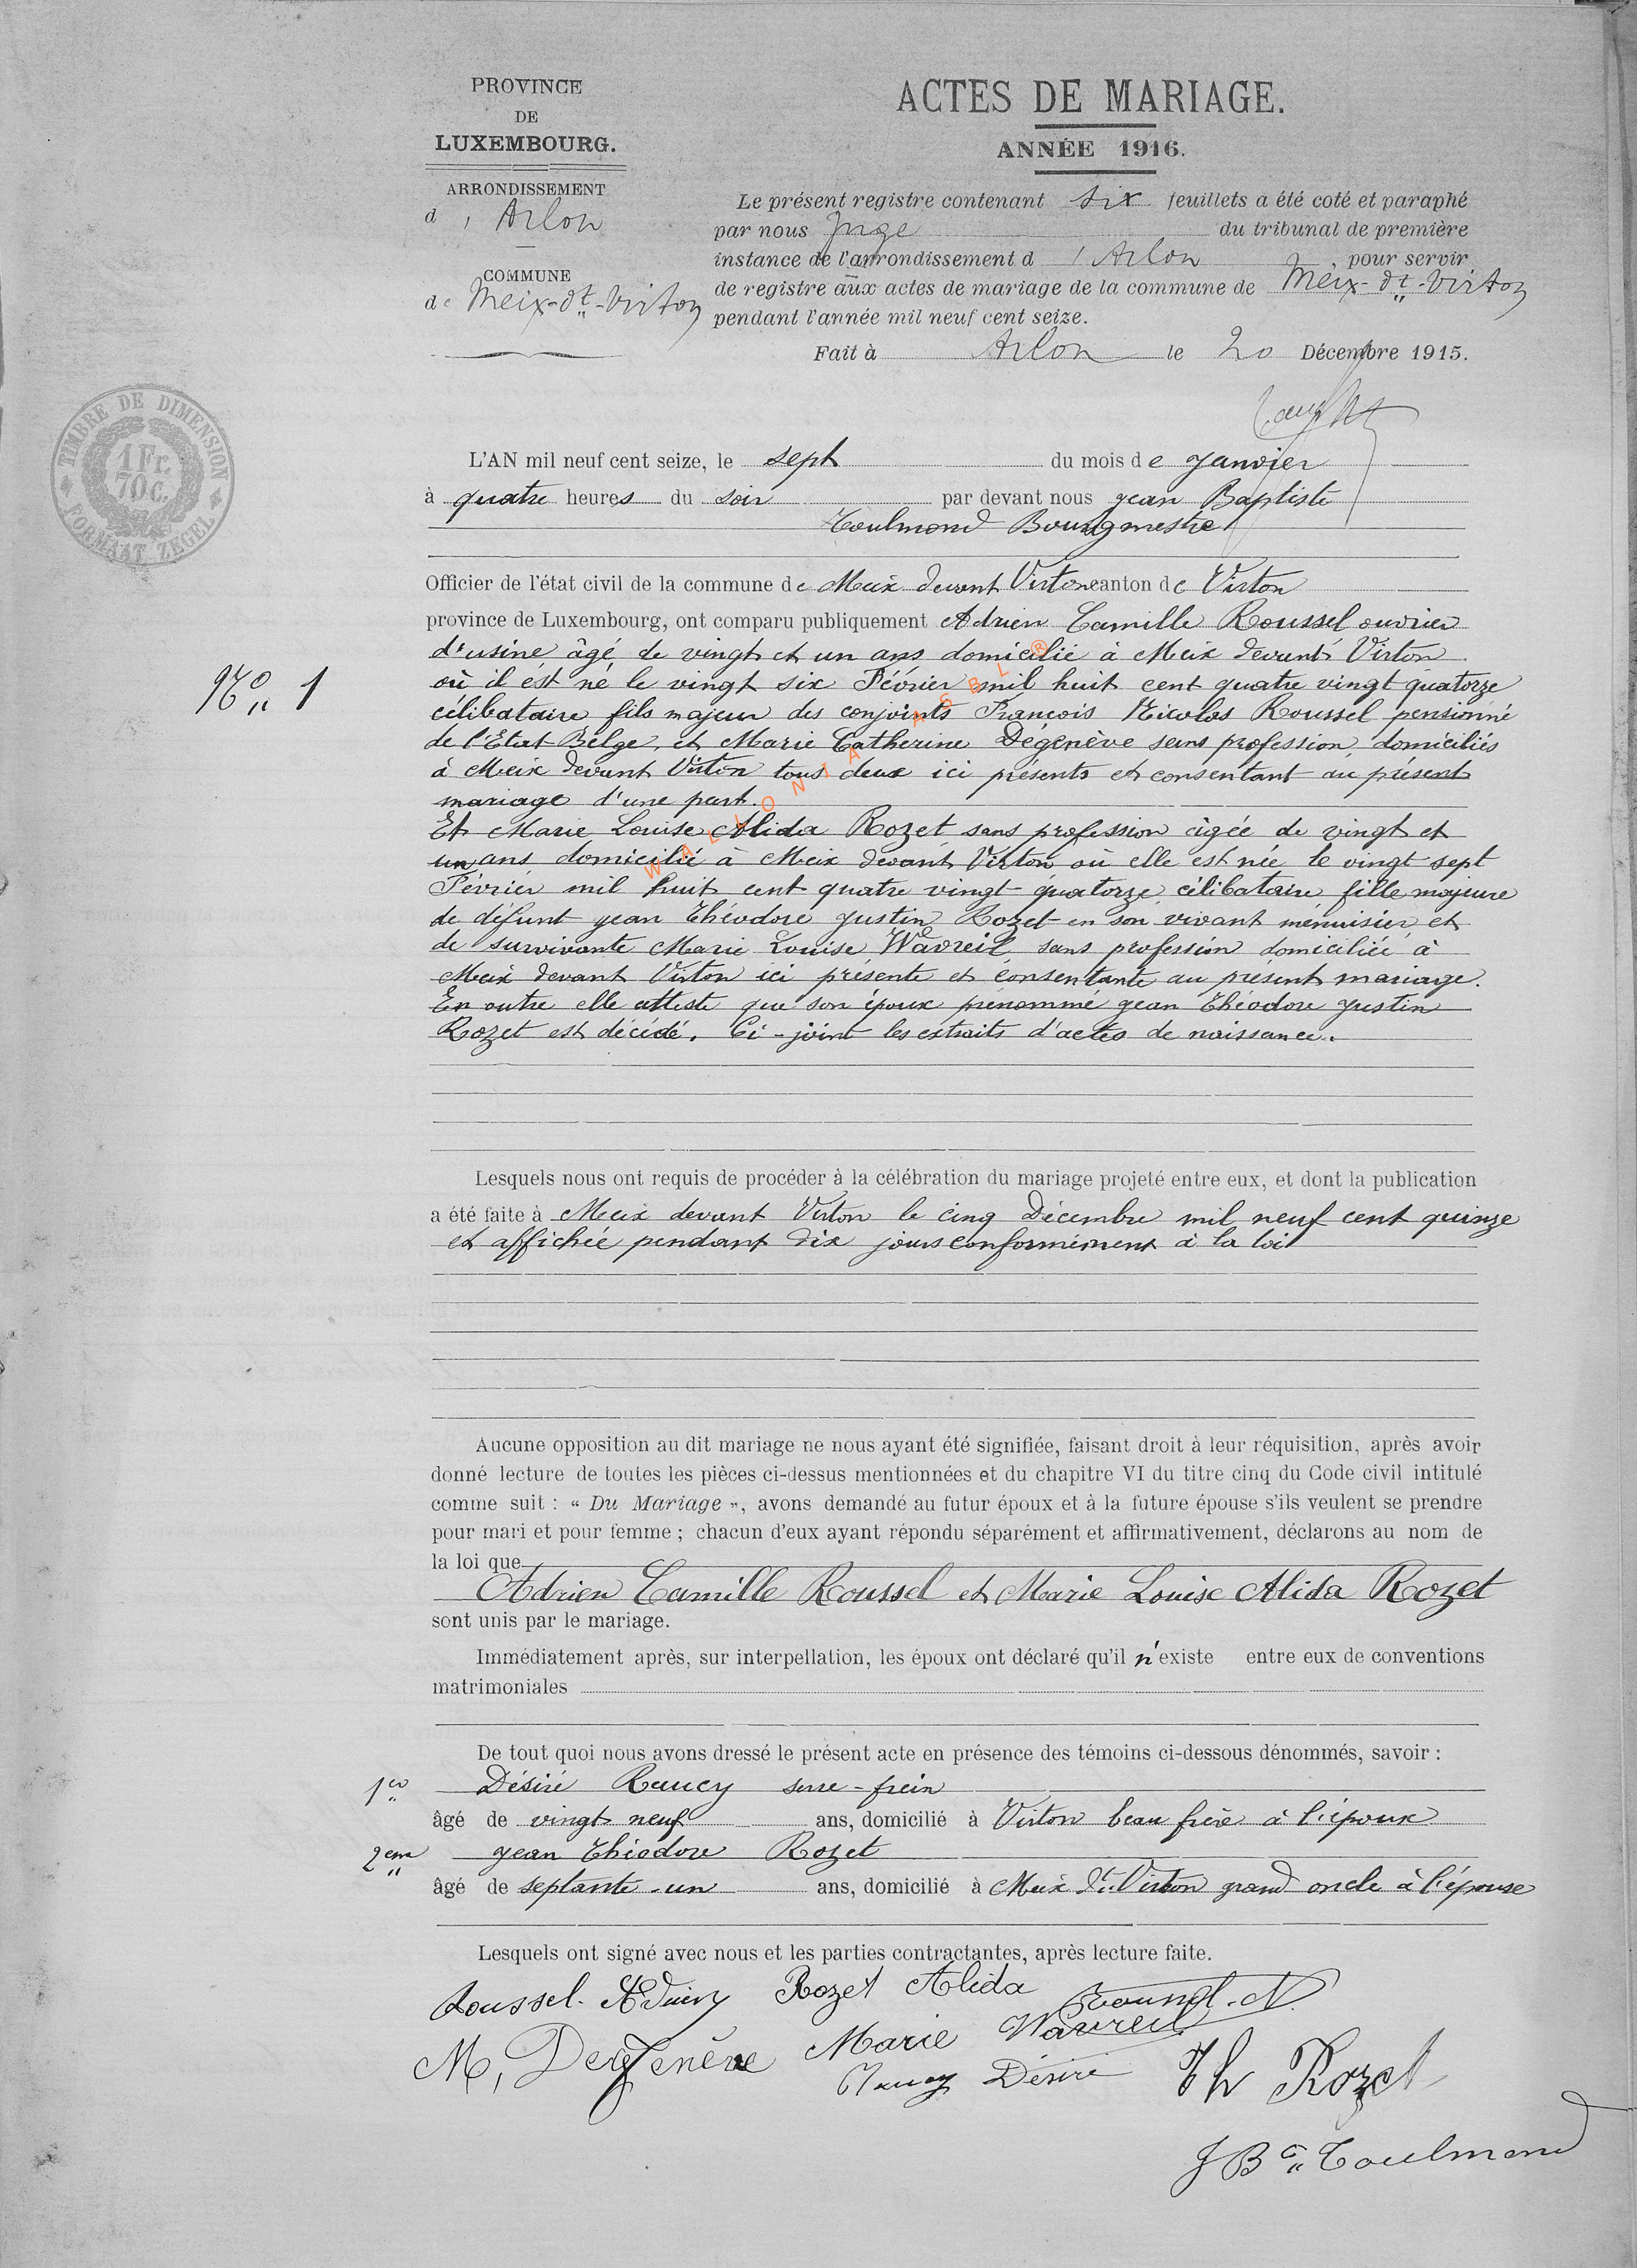 PROVINCE
DE
LUXEMBOURG.
ARRONDISSEMENT
d'Arlon
COMMUNE
de Meix-dt-Virton
ACTES DE MARIAGE.
ANNÉE 1916.
Le présent registre contenant six feuillets a été coté et paraphé
par nous Juge du tribunal de première
instance de l'arrondissement d'Arlon pour servir
de registre aux actes de mariage de la commune de Meix-dt-Virton
pendant l'année mil neuf cent seize.
Fait à Arlon le 20 Décembre 1915.
TIMBRE DE DIMENSION
1 Fr.
70 C.
FORMAAT ZEGEL
L'AN mil neuf cent seize, le sept du mois de Janvier
à quatre heures du soir par devant nous Jean Baptiste
Toulmond Bourgmestre
Officier de l'état civil de la commune de Meix devant Virton canton de Virton
province de Luxembourg, ont comparu publiquement Adrien Camille Roussel ouvrier
d'usine âgé de vingt et un ans domicilié à Meix devant Virton
No 1
où il est né le vingt six Février mil huit cent quatre vingt quatorze
célibataire fils majeur des conjoints François Nicolas Roussel pensionné
de l'Etat Belge, et Marie Catherine Dégenève sans profession domiciliés
à Meix devant Virton tous deux ici présents et consentant au présent
mariage d'une part.
Et Marie Louise Alida Rozet sans profession âgée de vingt et
un ans domicilié à Meix devant Virton où elle est née le vingt sept
Février mil huit cent quatre vingt quatorze célibataire fille majeure
de défunt Jean Théodore Justin Rozet en son vivant menuisier et
de survivante Marie Louise Wavreil sans profession domiciliée à
Meix devant Virton ici présente et consentante au présent mariage.
En outre elle atteste que son époux prénommé Jean Théodore Justin
Rozet est décédé. Ci-joint les extraits d'actes de naissance.
WALLONIA ASBL ®
Lesquels nous ont requis de procéder à la célébration du mariage projeté entre eux, et dont la publication
a été faite à Meix devant Virton le cinq Décembre mil neuf cent quinze
et affichée pendant dix jours conformément à la loi
Aucune opposition au dit mariage ne nous ayant été signifiée, faisant droit à leur réquisition, après avoir
donné lecture de toutes les pièces ci-dessus mentionnées et du chapitre VI du titre cinq du Code civil intitulé
comme suit : « Du Mariage », avons demandé au futur époux et à la future épouse s'ils veulent se prendre
pour mari et pour femme ; chacun d'eux ayant répondu séparément et affirmativement, déclarons au nom de
la loi que
Adrien Camille Roussel et Marie Louise Alida Rozet
sont unis par le mariage.
Immédiatement après, sur interpellation, les époux ont déclaré qu'il n'existe entre eux de conventions
matrimoniales
De tout quoi nous avons dressé le présent acte en présence des témoins ci-dessous dénommés, savoir :
1er Désiré Raucy serre-frein
âgé de vingt neuf ans, domicilié à Virton beau frère à l'époux
2em Jean Théodore Rozet
âgé de septante-un ans, domicilié à Meix dt Virton grand oncle à l'épouse
Lesquels ont signé avec nous et les parties contractantes, après lecture faite.
Roussel. Adrien Rozet Alida
M, Degenève Marie Wavreil
Raucy Désiré Th Rozet
J Bte Toulmond